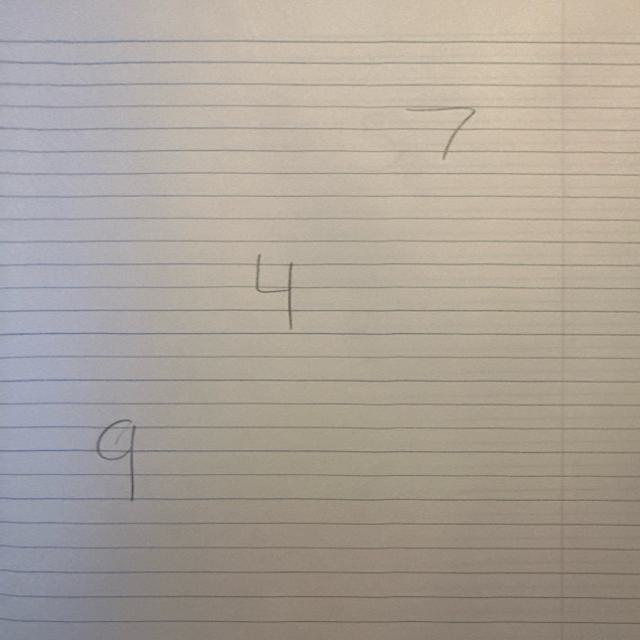 7
4
9